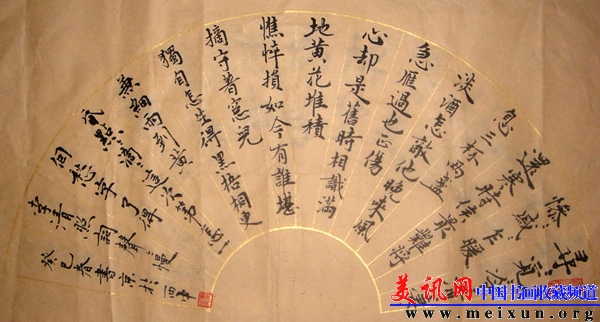 尋、覓、
慘、戚、乍暖
還寒時候最難將
息三杯兩盞
淡酒怎敵他晚來風
急雁過也正傷
心却是舊時相識滿
地黄花堆積
憔悴損如今有誰堪
摘守著窓兒
獨自怎生得黑梧桐更
兼細雨到黄
昏點、滴、這次第怎一
个愁字了得
李清照詞聲聲慢
癸巳春書京
美讯网 中国书画收藏频道
www.meixun.org